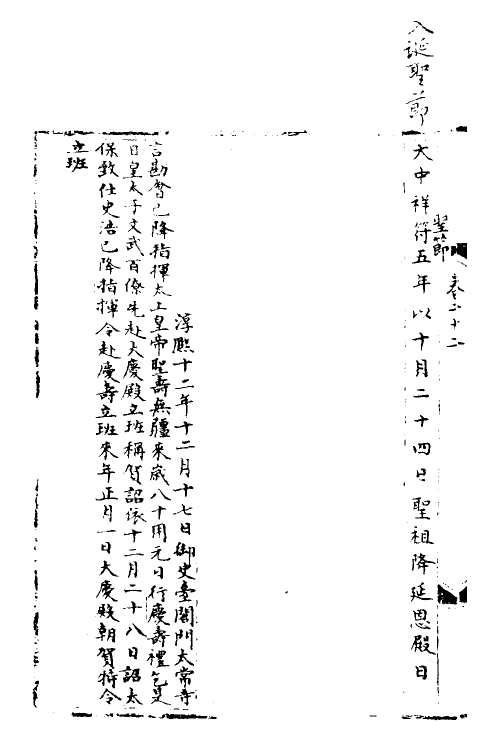 入誕聖節
聖節
卷二十二
大中祥符五年以十月二十四日聖祖降延恩殿日
淳熙十二年十二月十七日御史臺閤門太常寺
言勘會已降指揮太上皇帝聖壽無疆來歲八十用元日行慶壽禮乞是
日皇太子文武百僚先赴大慶殿立班稱賀詔依十二月二十八日詔太
保致仕史浩已降指揮令赴慶壽立班來年正月一日大慶殿朝賀特令
立班